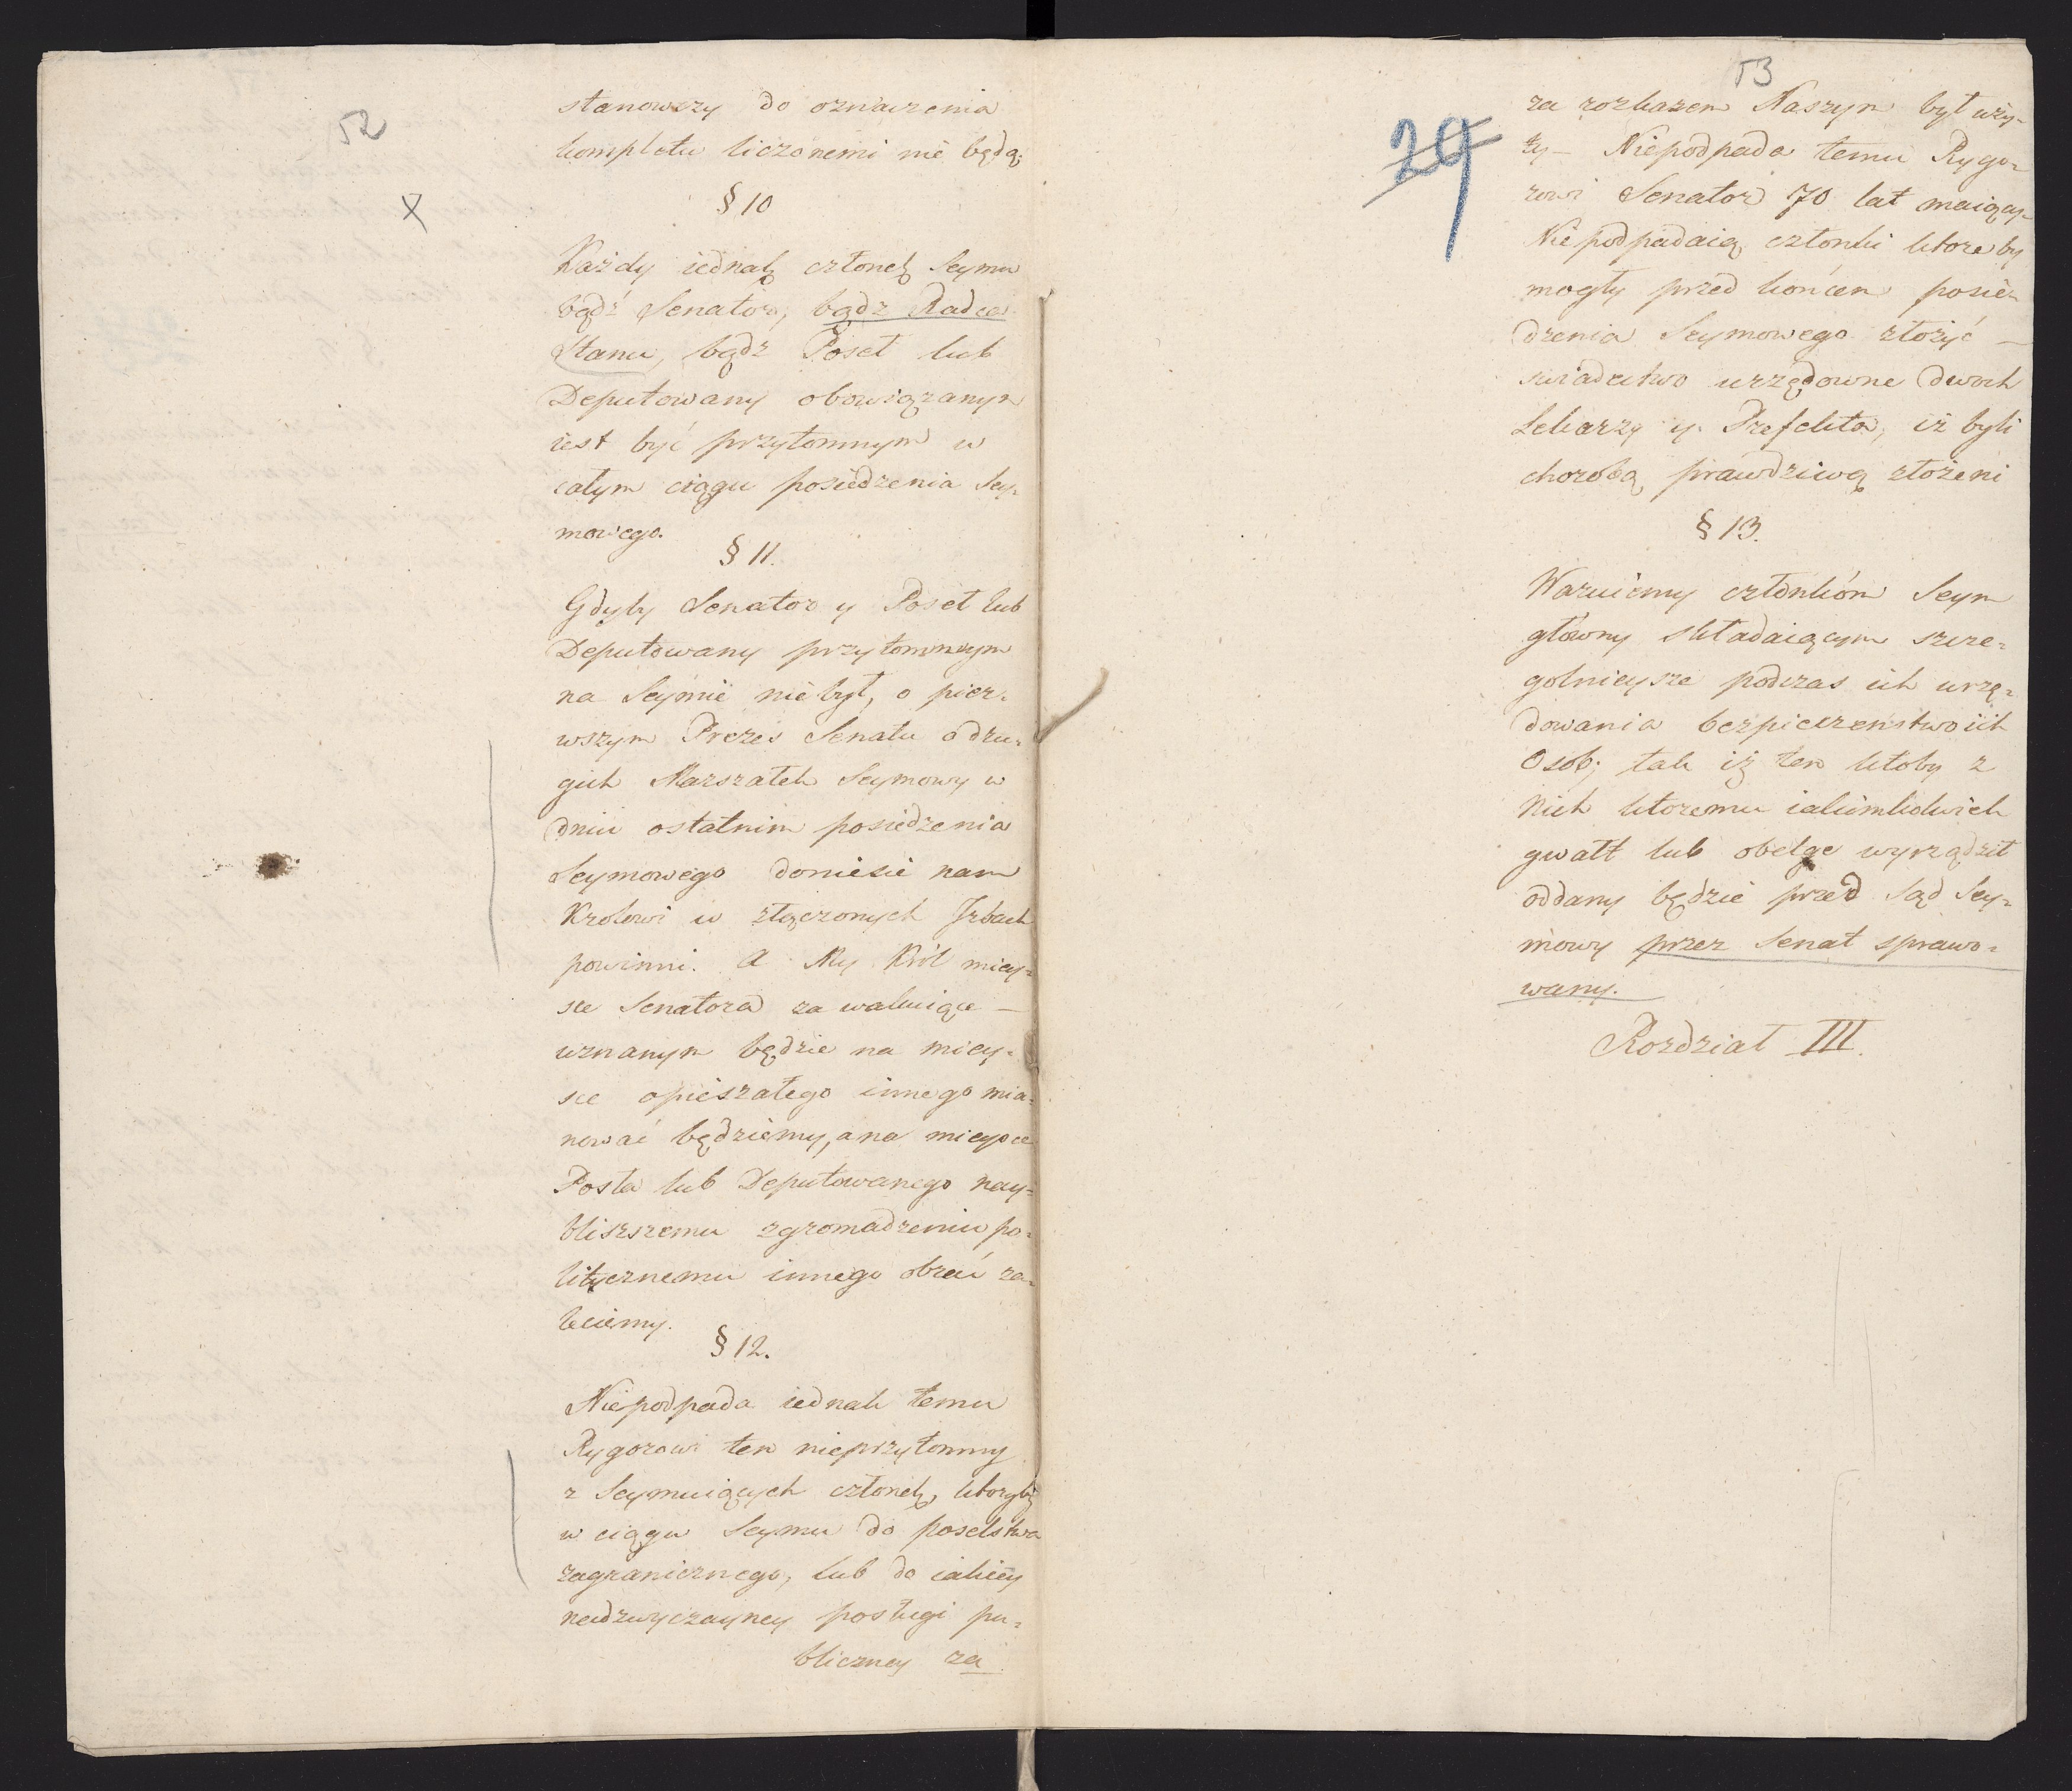 52
stanowszy do oznaczenia
kompletu liczonemi nie będą.
X
§ 10
Każdy iednak członek Seymu
bądź Senator, bądz Radca
Stanu, bądz Poseł lub
Deputowany obowiązanym
iest być przytomnym w
całym ciągu posiedzenia Sey-
mowego.
§ 11.
Gdyby Senator y Poseł lub
Deputowany przytomnym
na Seymie nie był, o pier-
wszym Prezes Senatu o dru-
gich Marszałek Seymowy w
dniu ostatnim posiedzenia
Seymowego doniesie nam
Krolowi w złączonych Izbach
powinni. A My Król miey-
sce Senatora za wakuiące —
uznanym będzie na miey-
sce opieszałego innego mia-
nować będziemy, a na mieysce
Posła lub Deputowanego nay-
bliszszemu zgromadzeniu po-
litycznemu innego obrać za-
leciemy.
§ 12.
Niepodpada iednak temu
Rygorowi ten nieprzytomny
z Seymuiących członek, ktoryby
w ciągu Seymu do poselstwa
zagranicznego, lub do iakiey
nadzwyczayney posługi pu-
bliczney za
53
29
za rozkazem Naszym był uży-
ty — Niepodpada temu Rygo-
rowi Senator 70 lat maiący
Nie podpadaią członki ktore by
mogły przed końcem posie-
dzenia Seymowego złożyć —
swiadectwo urzędowne dwoch
Lekarzy y Prefekta, iż byli
chorobą prawdziwą złożeni
§ 13.
Waruiemy członkóm Seym
główny składaiącym szcze-
golnieysze podczas ich urzę-
dowania bezpieczenstwo ich
Osob; tak iż ten ktoby z
Nich ktoremu iakimkolwiek
gwałt lub obelgę wyrządził
oddany będzie przed Sąd Sey-
mowy przez Senat sprawo-
wany.
Rozdział III.